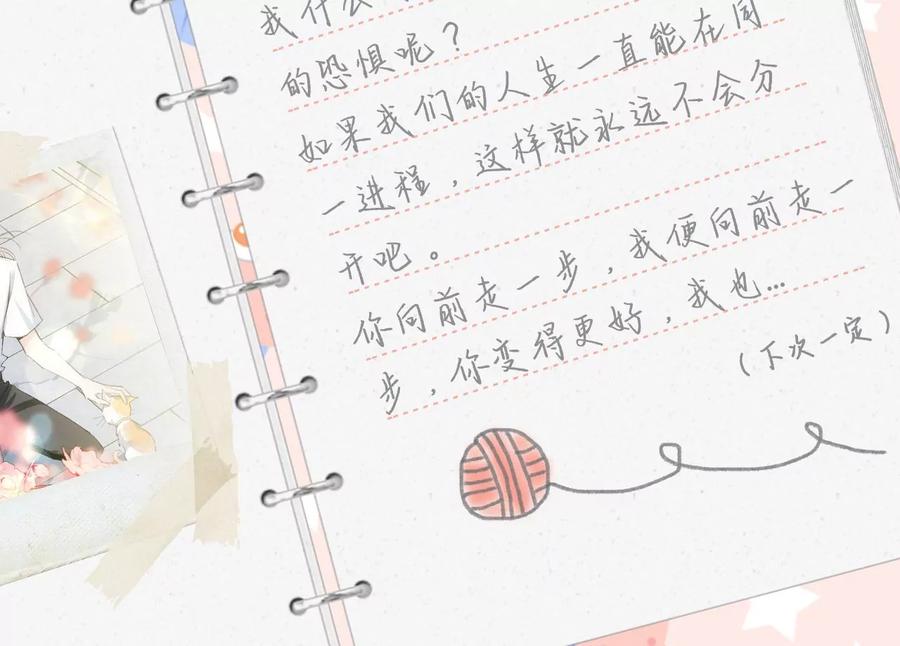 我什么
的恐惧呢？
如果我们的人生一直能在同
一进程，这样就永远不会分
开吧。
你向前走一步，我便向前走一
步，你变得更好，我也...
（下次一定）